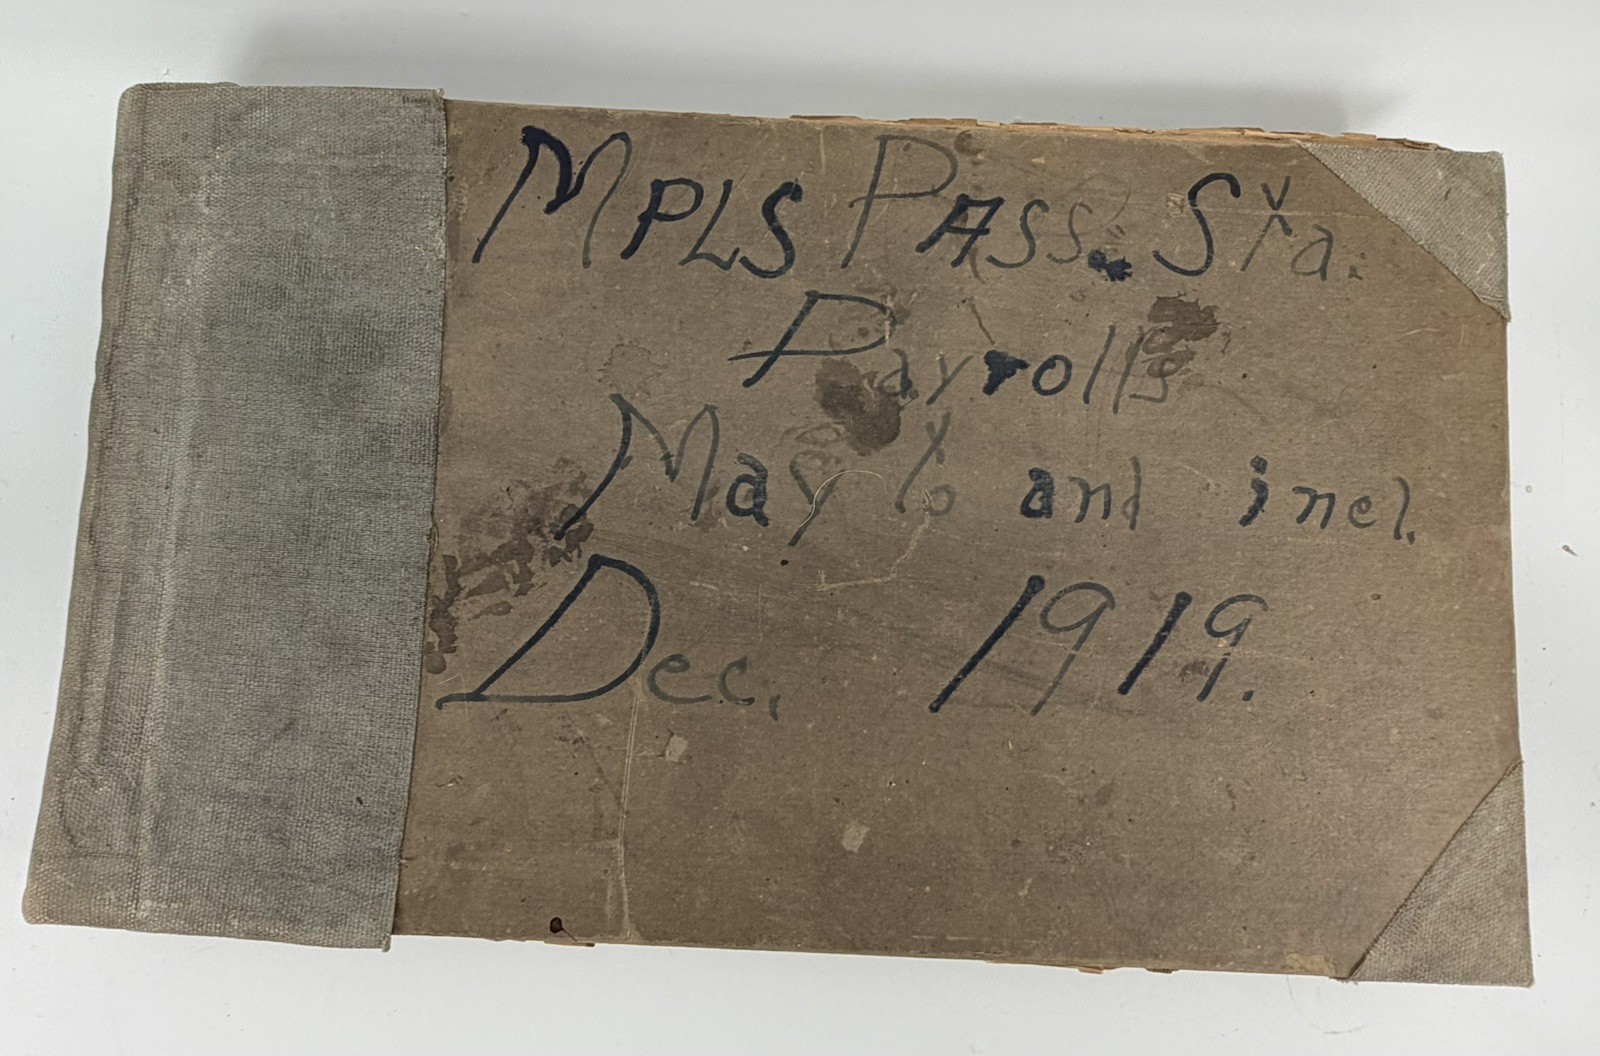 MPLS PASS. Sta.
Payrolls
May to and incl.
Dec. 1919.